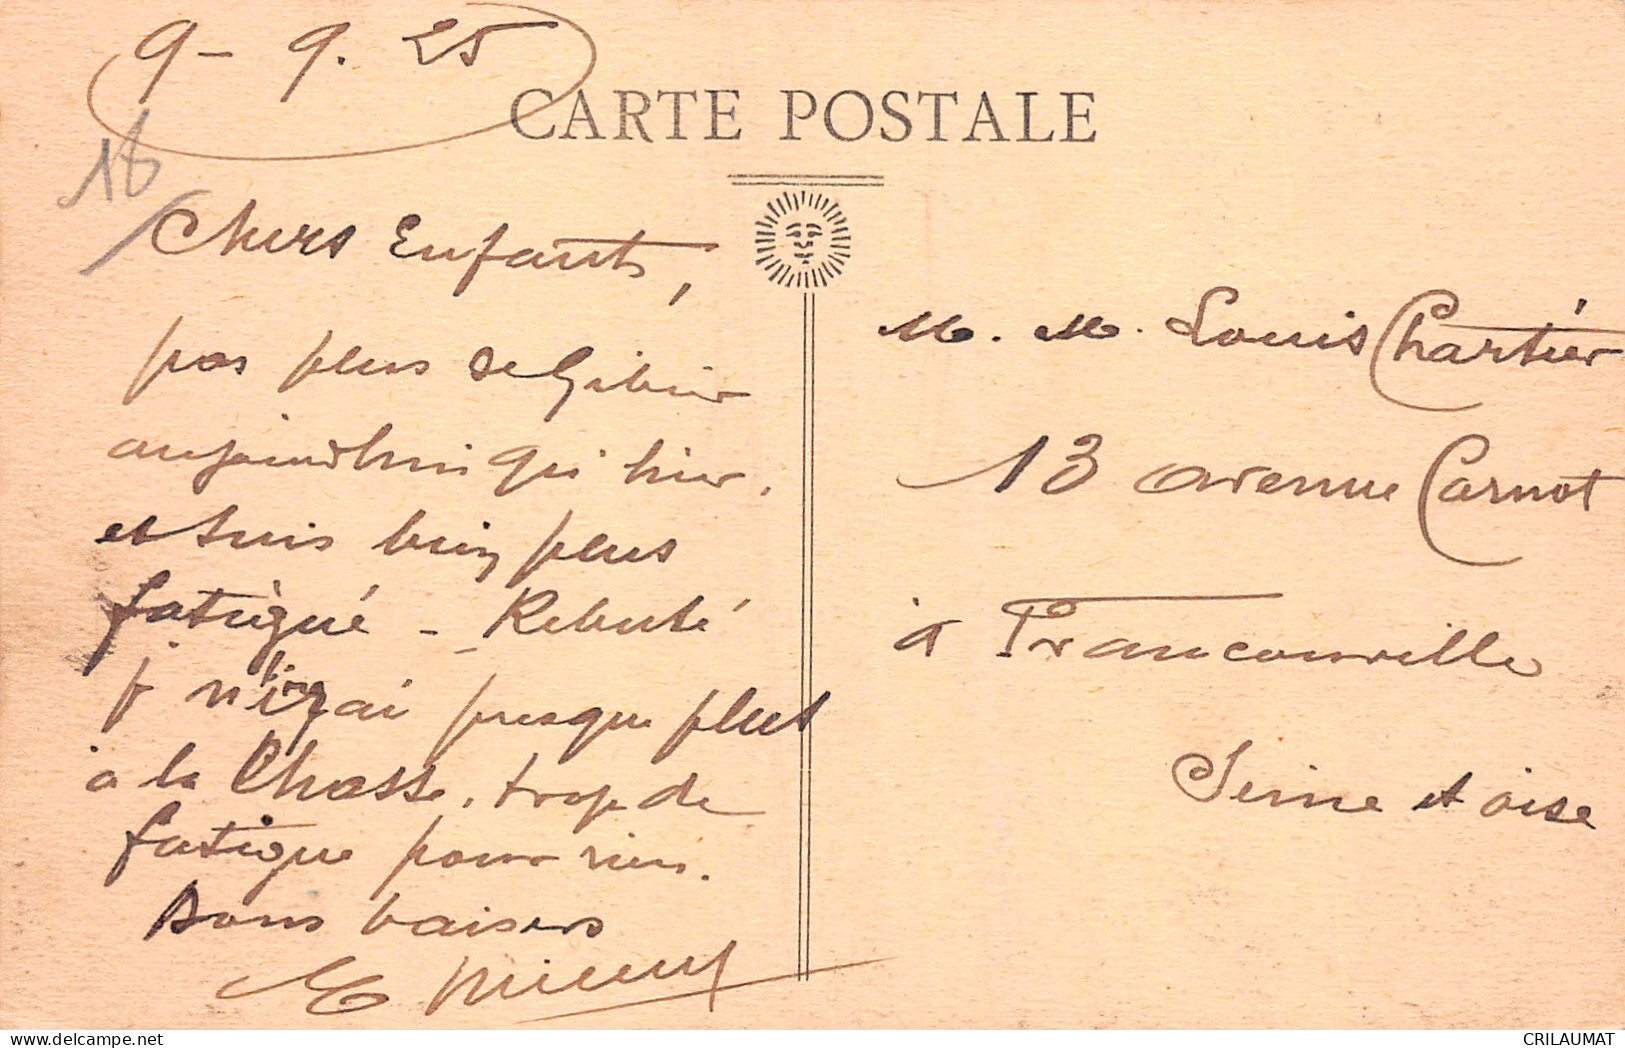 9 - 9. 25
CARTE POSTALE
18
Chers Enfants,
pas plus de Gibier
aujourdhui qu'hier,
et suis bien plus
fatigué - Rebuté
j n'irai presque plus
à la Chasse, trop de
fatigue pour rien.
Bons baisers
M. M. Louis Chartier
13 avenue Carnot
à Franconville
Seine et oise
delcampe.net
CRILAUMAT